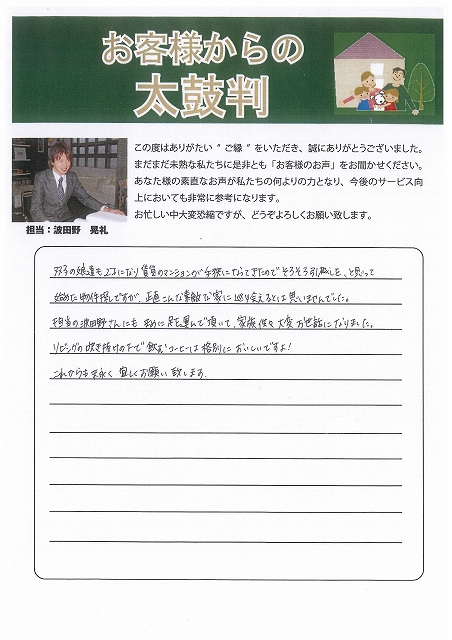 お客様からの
太鼓判
この度はありがたい〝ご縁〞をいただき、誠にありがとうございました。
まだまだ未熟な私たちに是非とも「お客様のお声」をお聞かせください。
あなた様の素直なお声が私たちの何よりの力となり、今後のサービス向
上においても非常に参考になります。
お忙しい中大変恐縮ですが、どうぞよろしくお願い致します。
担当：波田野 晃礼
双子の娘達も2才になり賃貸のマンションが手狭になってきたのでそろそろ引越しを、と思って
始めた物件探しですが、正直こんな素敵な家に巡り会えるとは思いませんでした。
担当の波田野さんにも まめに足を運んで頂いて、家族 大変お世話になりました。
リビングの吹き抜けの下で飲むコーヒーは格別においしいですよ！
これからも末永く 宜しくお願い致します。